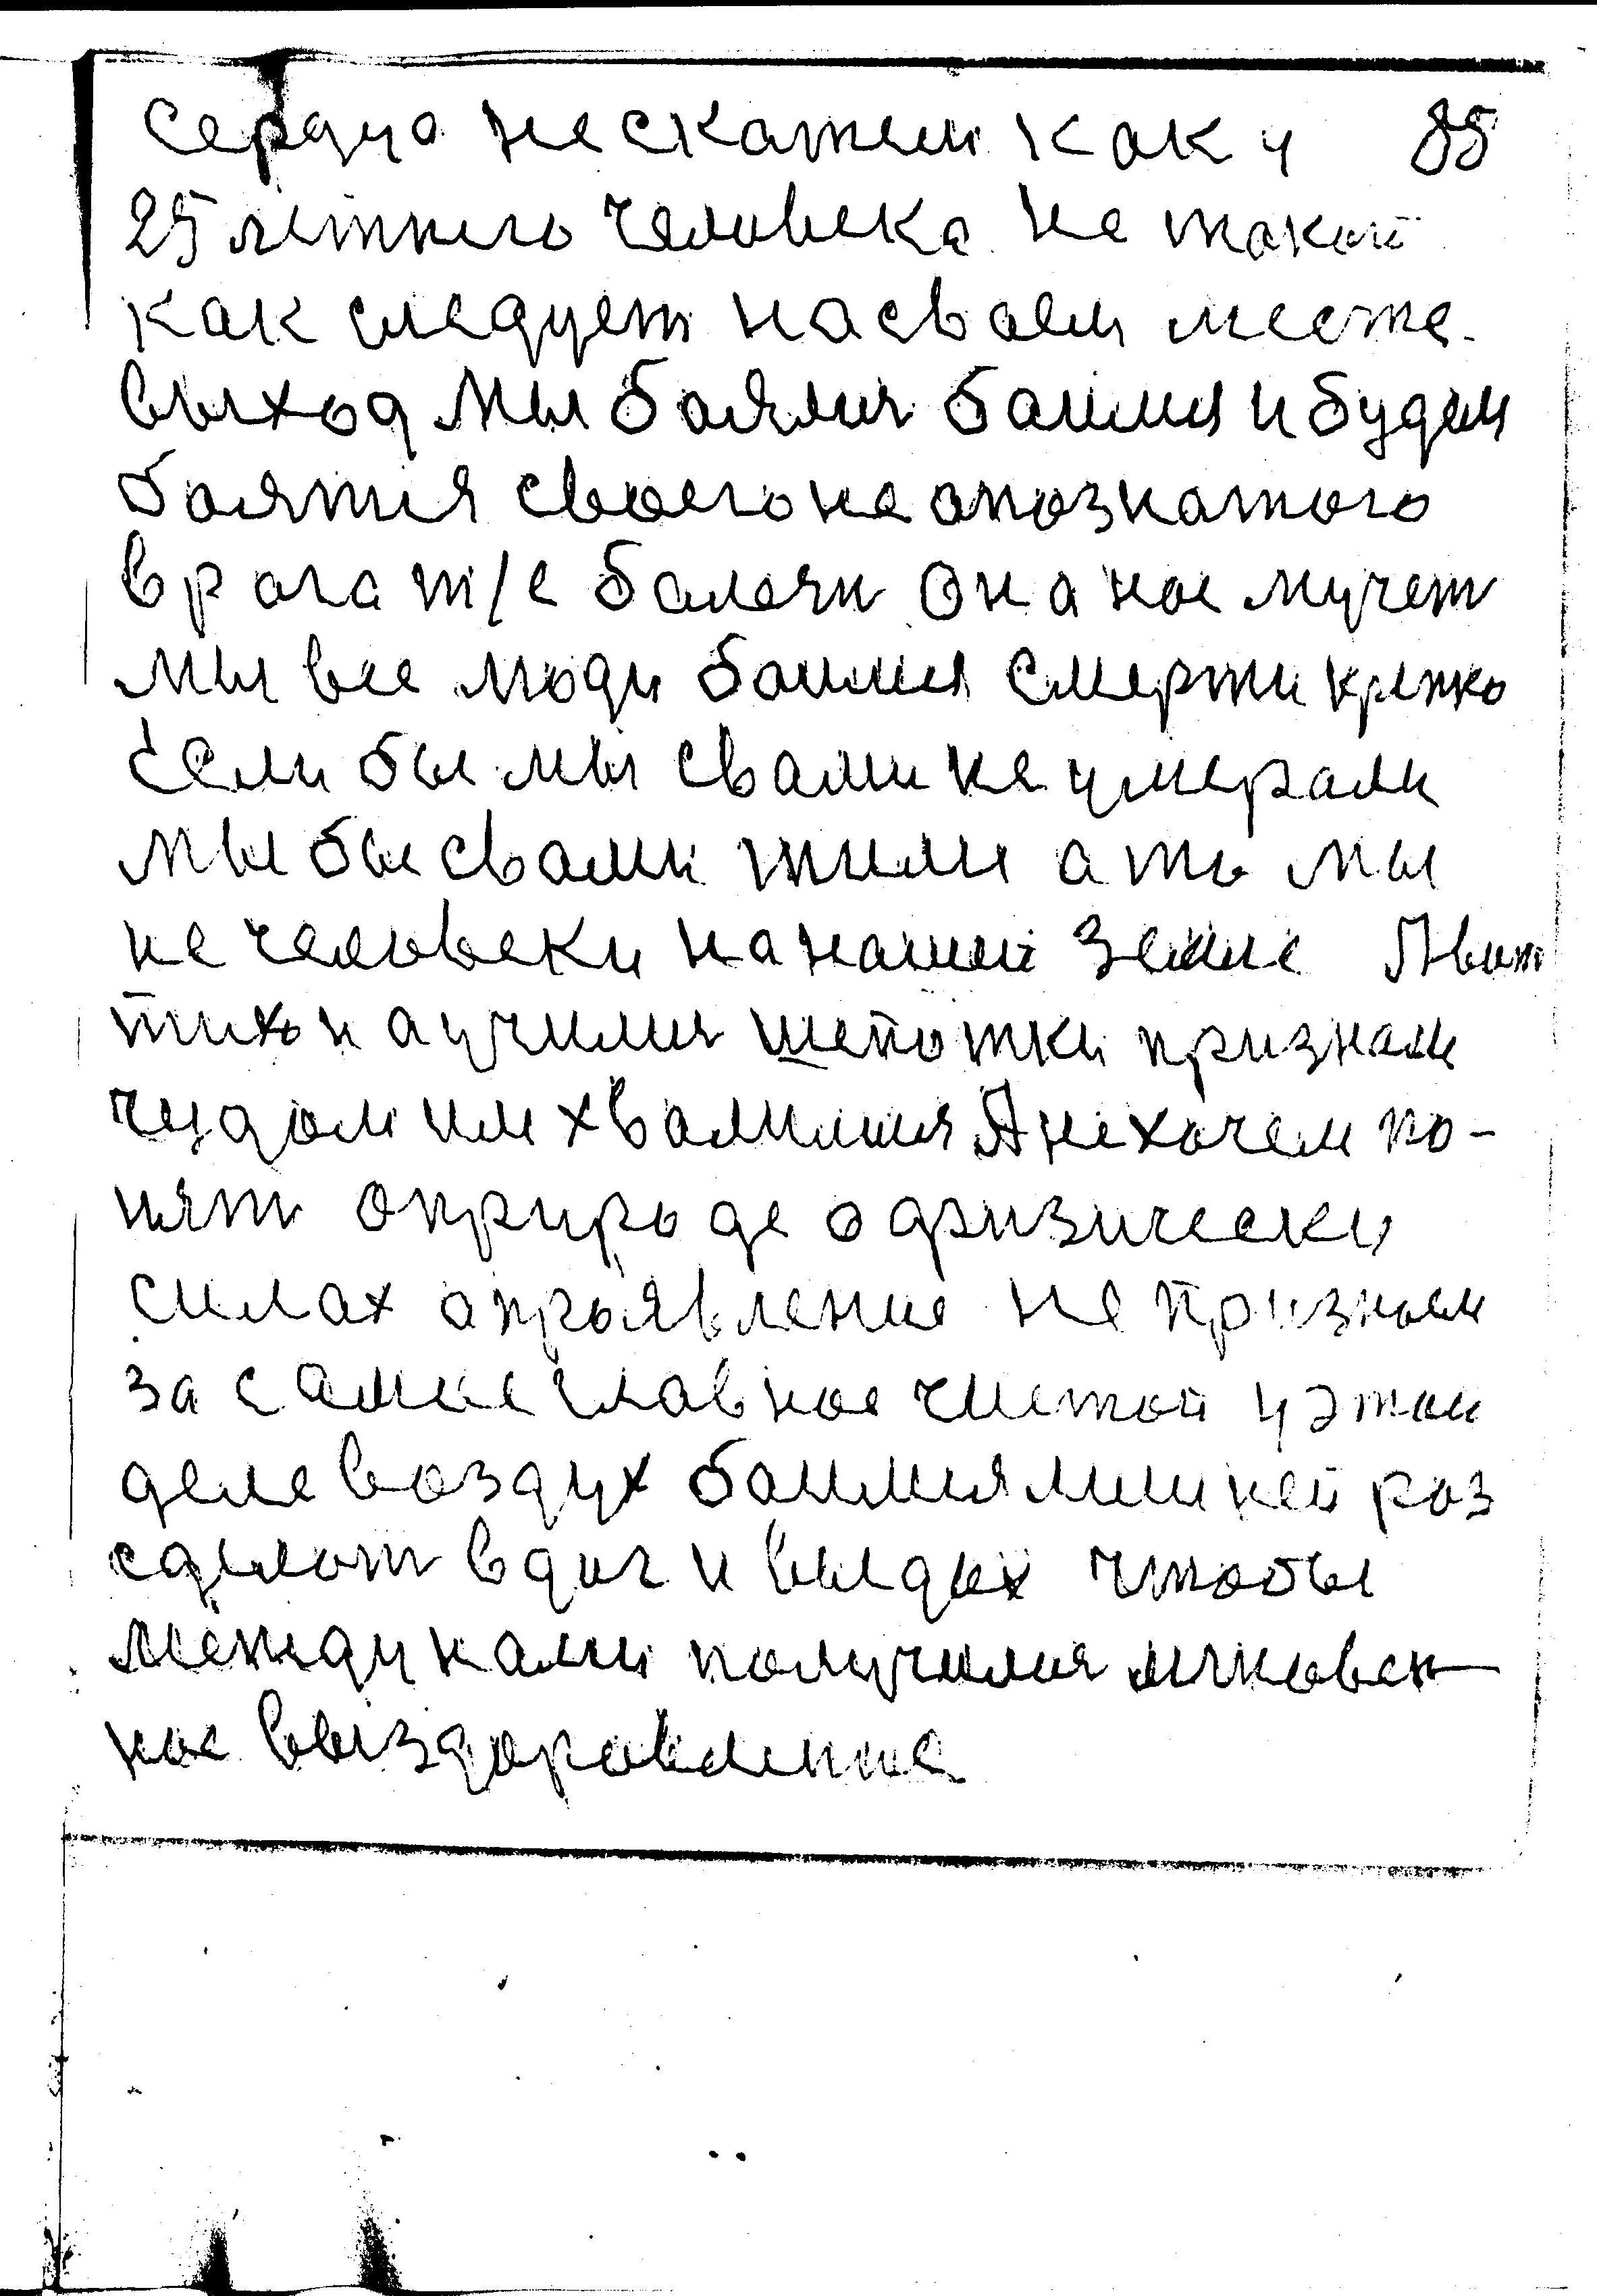 Сердца нескажеш как у 85
25 летнего человека не такой
как следует насваем месте.
выход мы баялися боимся и будем
баятся своего не опознатого
врага т/е болезни она нас мучет
мы все люди боимся смерти крепко
Если бы мы свами не умерали
мы бы свами жили а то мы
не человеки на нашей земле
тихо научилися шепотки признали
чудом им хвалимся А не хочем по-
нят о природе о физически
силах о проявление не признаем
за самое главное чистой у этом
деле воздух боимся лишней раз
сделат вдох и выдох чтобы
между нами получился мгновен-
ное выздоровление